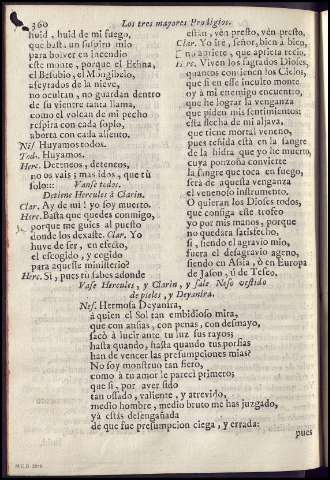 360 Los tres mayores Prodigios.
huid, huid de mi fuego,
que basta un suspiro mio
para bolver en incendio
este monte, porque el Ethna,
el Besubio, el Mongibelo,
afeytados de la nieve,
no ocultan, no guardan dentro
de su vientre tanta llama,
como el volcan de mi pecho
respira con cada soplo,
aborta con cada aliento.
Nis. Huyamos todos.
Tod. Huyamos.
Herc. Deteneos, deteneos,
no os vais; mas idos, que tù
solo::: Vanse todos.
Detiene Hercules à Clarin.
Clar. Ay de mì! yo soy muerto.
Herc. Basta que quedes conmigo,
porque me guies al puesto
donde los dexaste. Clar. Yo
huve de ser, en efecto,
el escogido, y cogido
para aquesse ministerio?
Herc. Si, pues tu sabes adonde
estàn, vèn presto, vèn presto.
Clar. Yo irè, señor, bien à bien,
no apriete, que aprieta recio.
Herc. Viven los sagrados Dioses,
quantos contienen los Cielos,
que si en esse inculto monte
y à mi enemigo encuentro,
que he lograr la venganza
que piden mis sentimientos:
esta flecha de mi aljava,
que tiene mortal veneno,
pues teñida està en la sangre
de la hidra que yo he muerto,
cuya ponzoña convierte
la sangre que toca en fuego,
serà de aquesta venganza
el venenoso instrumento.
O quieran los Dioses todos,
que consiga este trofeo
yo por mis manos, porque
no quedara satisfecho,
si, siendo el agravio mio,
fuera el desagravio ageno,
siendo en Assia, ò en Europa
de Jason, ù de Teseo.
Vase Hercules, y Clarin, y sale Neso vestido
de pieles, y Deyanira.
Nes. Hermosa Deyanira,
à quien el Sol tan embidioso mira,
que con ansias, con penas, con desmayo,
sacò à lucir ante tu luz sus rayos;
hasta quando, hasta quando tus porfias
han de vencer las presumpciones mias?
No soy monstruo tan fiero,
como à tu amor le pareci primero;
que si, por aver sido
tan ossado, valiente, y atrevido,
medio hombre, medio bruto me has juzgado,
yà estàs desengañada
de que fue presumpcion ciega, y errada:
pues